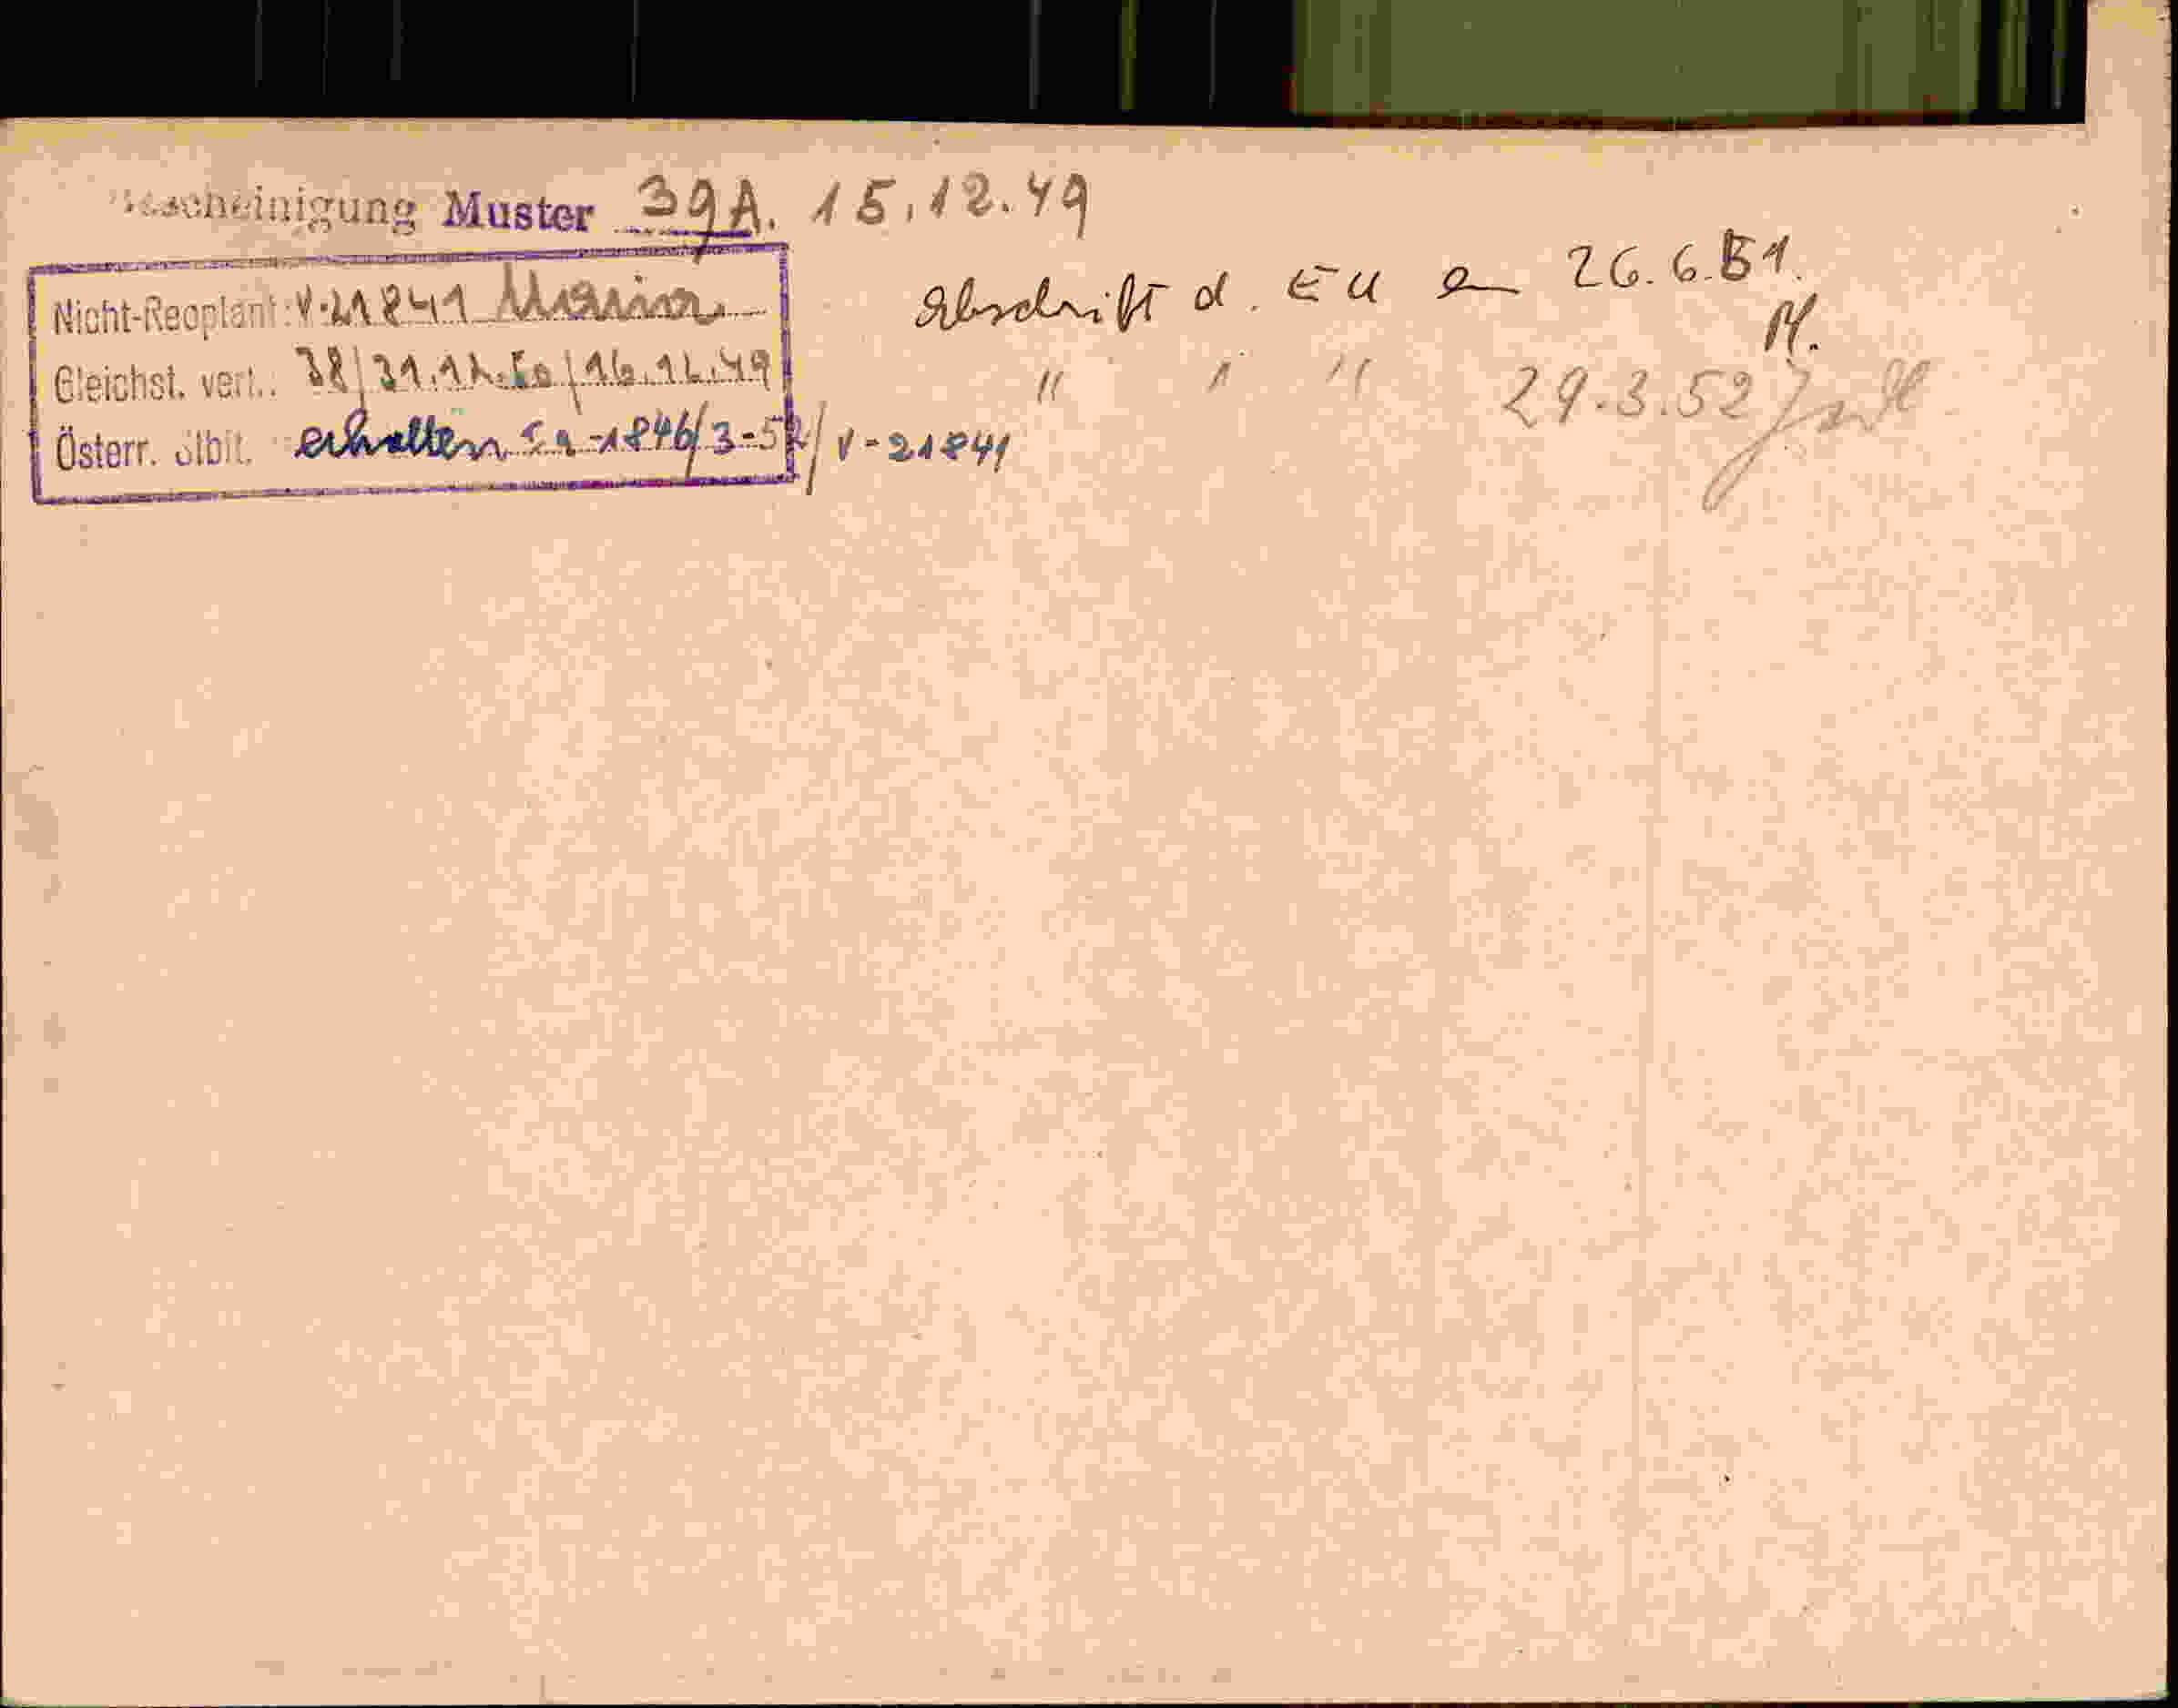 Bescheinigung Muster 39A. 15.12.49
Nicht-Reoptant: V-21841 Maria
Gleichst. verl.: 38/31.12.50/16.12.49
Österr. Stbit. erhalten -1846/3-52/V-21841
Abschrift d. EU 26.6.51.
M.
" " " 29.3.52